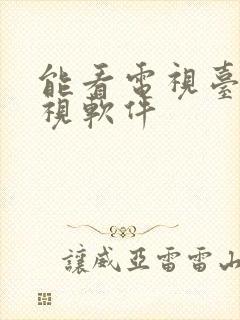 能看電視臺
視軟件
讓威亞雷雷山